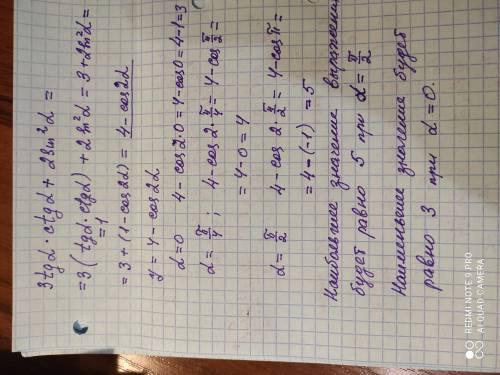 3tgα · ctgα + 2sin²α =
= 3(tgα · ctgα) + 2sin²α = 3 + 2sin²α =
=1
= 3 + (1 - cos2α) = 4 - cos2α
y = 4 - cos2α
α=0 4 - cos2·0 = 4 - cos0 = 4-1=3
α = π/4 ; 4 - cos2·π/4 = 4 - cos π/2 =
= 4 - 0 = 4
α = π/2 4 - cos 2·π/2 = 4 - cosπ =
= 4 - (-1) = 5
Наибольшее значение выражения
будет равно 5 при α = π/2
Наименьшее значение будет
равно 3 при α = 0.
REDMI NOTE 9 PRO
AI QUAD CAMERA